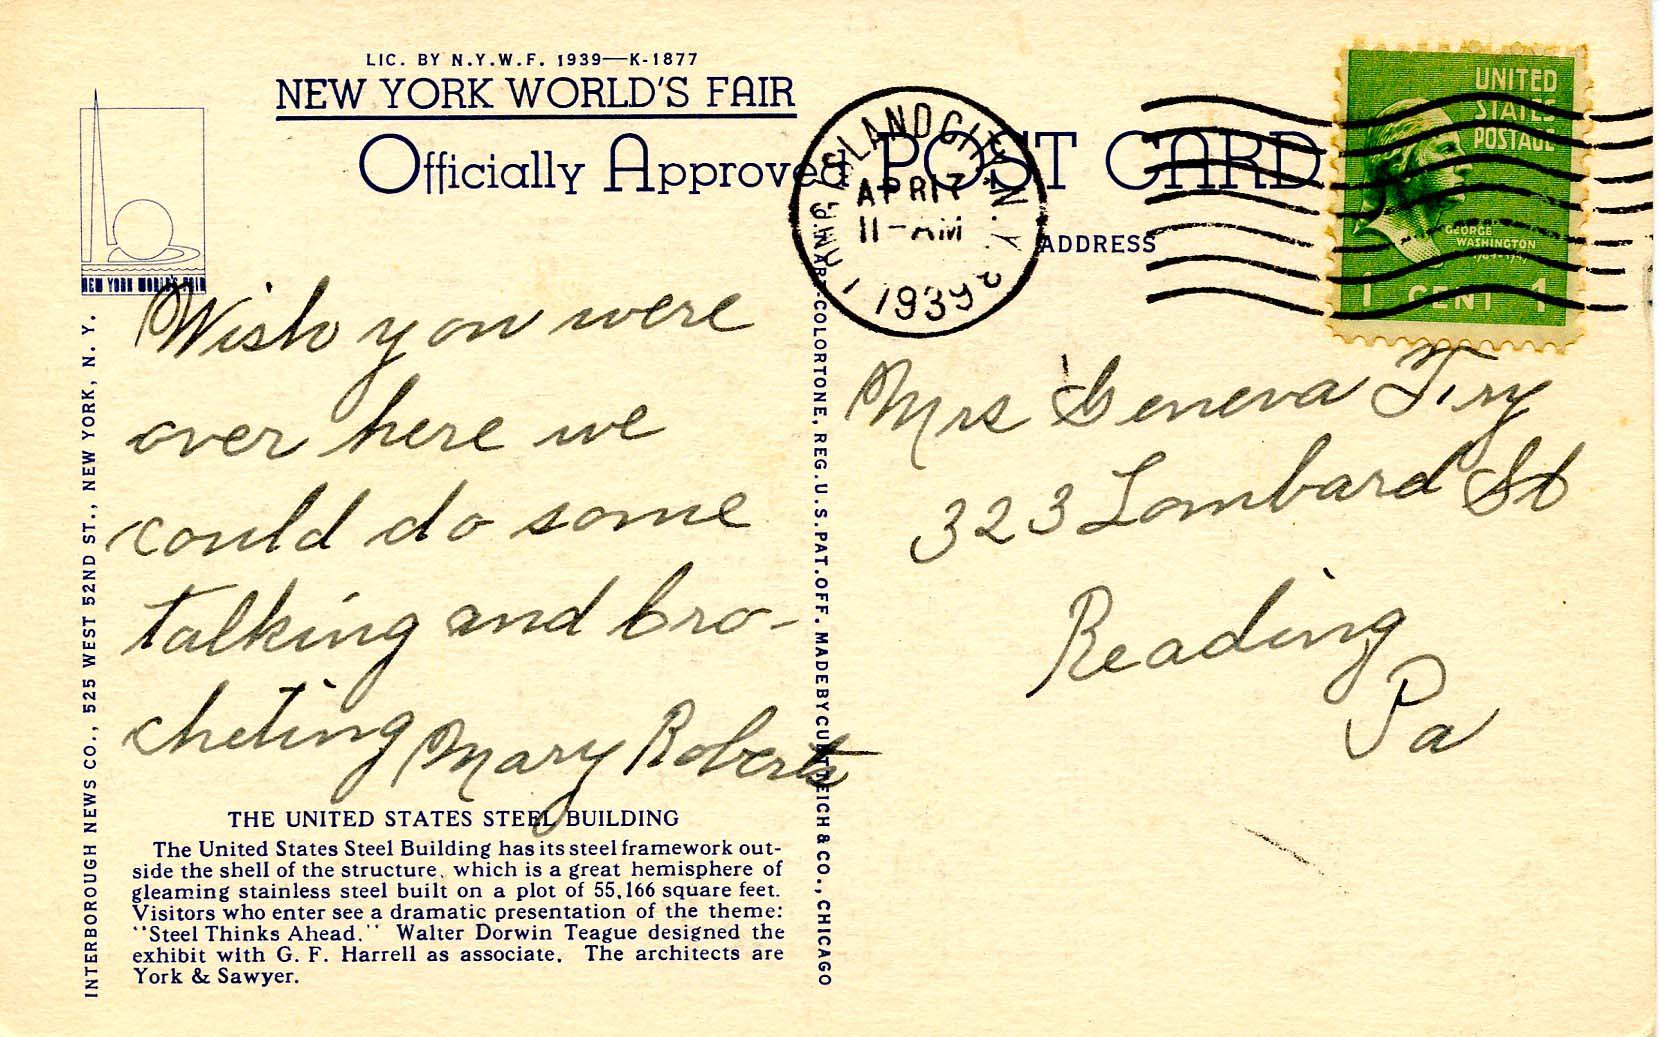 LIC. BY N.Y.W.F. 1939—K-1877
NEW YORK WORLD'S FAIR
Officially Approved POST CARD
NEW YORK WORLD'S FAIR
ISLAND CITY, N.Y.
APR 17
11-AM
1939
UNITED
STATES
POSTAGE
GEORGE
WASHINGTON
1 CENT 1
ADDRESS
Wish you were
over here we
could do some
talking and cro-
cheting Mary Roberts
Mrs Geneva
323 Lombard St
Reading
Pa
THE UNITED STATES STEEL BUILDING
The United States Steel Building has its steel framework out-
side the shell of the structure, which is a great hemisphere of
gleaming stainless steel built on a plot of 55,166 square feet.
Visitors who enter see a dramatic presentation of the theme:
"Steel Thinks Ahead." Walter Dorwin Teague designed the
exhibit with G. F. Harrell as associate. The architects are
York & Sawyer.
INTERBOROUGH NEWS CO., 525 WEST 52ND ST., NEW YORK, N. Y.
COLORTONE, REG. U.S. PAT. OFF. MADE BY CURT TEICH & CO., CHICAGO